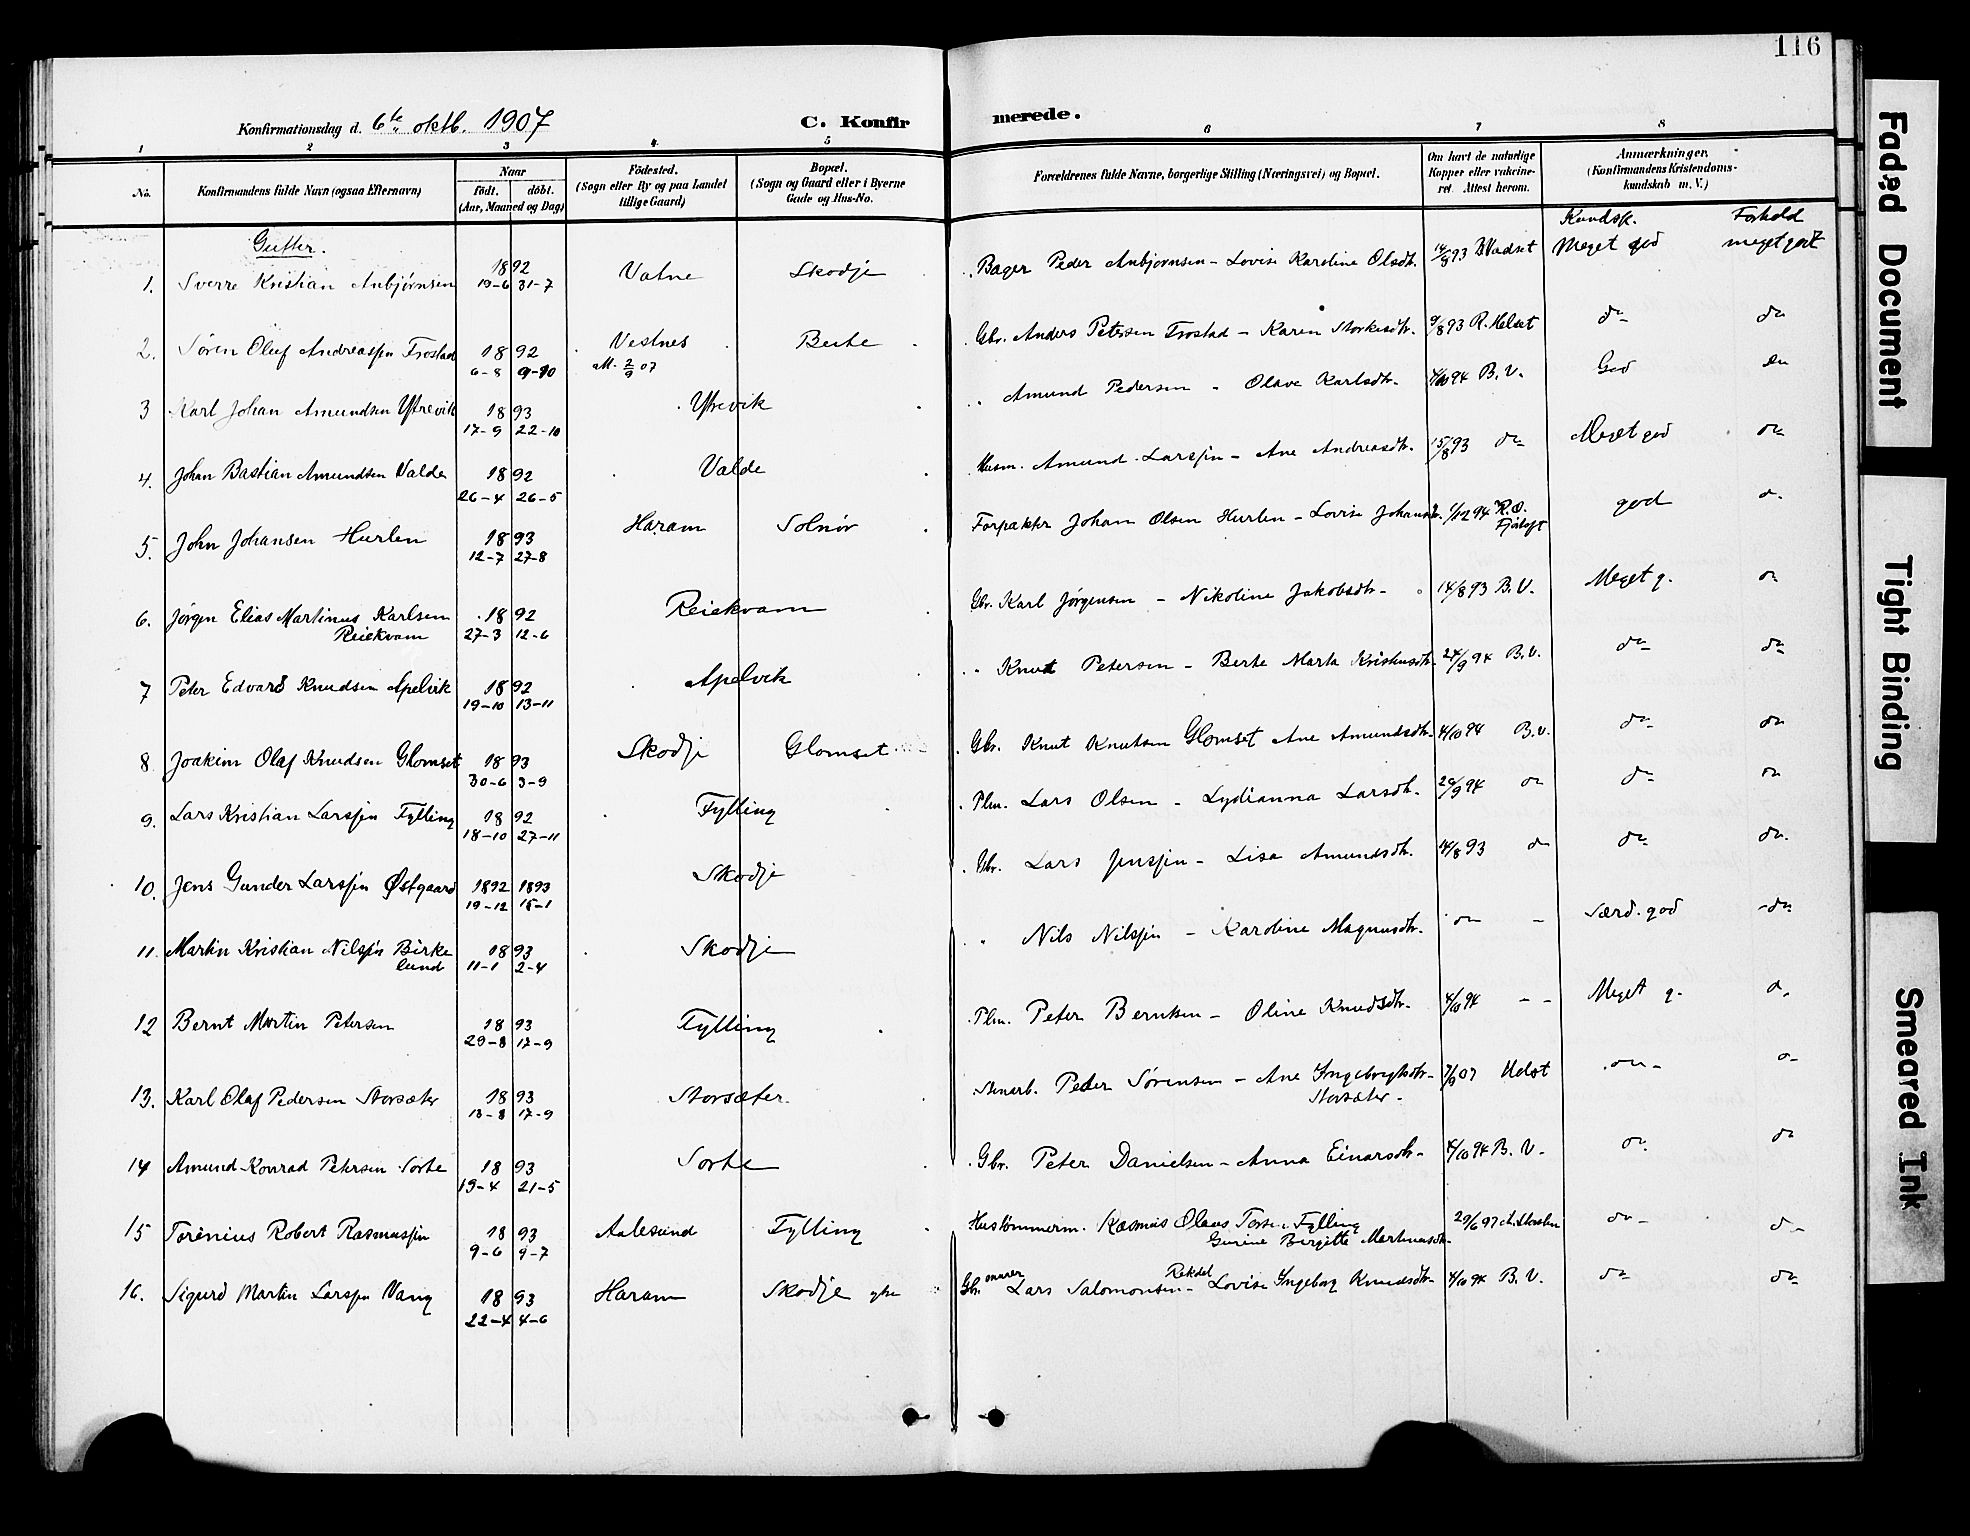 116
Konfirmationsdag d. 6te oktb. 1907
C. Konfirmerede.
1 2 3 4. 5 6 7 8
No. Konfirmandens fulde Navn (ogsaa Efternavn) Naar født. døbt. (Aar, Maaned og Dag) Födested. (Sogn eller By og paa Landet tillige Gaard) Bopæl. (Sogn og Gaard eller i Byerne Gade og Hus-No. Forældrenes fulde Navne, borgerlige Stilling (Næringsvei) og Bopæl. Om havt de naturlige Kopper eller vakcineret. Attest herom. Anmærkninger. (Konfirmandens Kristendomskundskab m. V.)
Gutter. Kundsk. Forhold
1. Sverre Kristian Anbjørnsen 1892 19-6 31-7 Vatne Skodje Bager Peder Anbjørnsen - Lovise Karoline Olsdtr. 14/8 93 B. Vadset Meget god meget godt
2. Søren Oluf Andreassen Frostad 1892 6-8 9-10 Vestnes Att. 2/9 07 Beite Gbr. Anders Petersen Frostad - Karen Storkesdtr. 9/8 93 R. Helset do do
3 Karl Johan Amundsen Ytrevik 1893 17-9 22-10 Ytrevik " Amund Pedersen - Olave Karlsdtr. 4/10 94 B. V. God do
4. Johan Bastian Amundsen Valde 1892 26-4 26-5 Valde Husm. Amund Larssen - Ane Andreasdtr. 15/8 93 do Meget god do
5. John Johansen Hurlen 1893 12-7 27-8 Haram Solnør Forpakter Johan Olsen Hurlen - Lovise Johansdtr. 1/12 94 R. O. Fjørtoft god do
6. Jørgen Elias Martinus Karlsen Reiekvam 1892 27-3 12-6 Reiekvam Gbr. Karl Jørgensen - Nikoline Jakobsdtr - 14/8 93 B. V. Meget g. do
7 Peter Edvard Knudsen Apelvik 1892 19-10 13-11 Apelvik " Knut Petersen - Berte Marta Kristensdtr. 24/9 94 B. V. do do
8 Joakim Olaf Knudsen Glomset 1893 30-6 3-9 Skodje Glomset Gbr. Knut Knutsen Glomset Ane Amundsdtr. 4/10 94 B. V. do do
9. Lars Kristian Larssen Fylling 1892 18-10 27-11 Fylling Plm. Lars Olsen - Lydianna Larsdtr. 24/9 94 do do do
10. Jens Gunder Larssen Østgaard 1892 1893 19-12 15-1 Skodje Gbr. Lars Jenssen - Lisa Amundsdtr. 14/8 93 do do do
11. Martin Kristian Nilssen Birkelund 1893 11-1 2-4 Skodje " Nils Nilssen - Karoline Magnusdtr. do - Særd. god do
12 Bernt Martin Petersen 1893 29-8 17-9 Fylling Plm. Peter Berntsen - Oline Knudsdtr. 4/10 94 - - Meget g. do
13. Karl Olaf Pedersen Storsæter 1893 13-8 17-9 Storsæter. Stenarb. Peder Sørensen - Ane Ingebrigtsdtr - Storsæter - 7/9 07 Udst do - do
14 Amund Konrad Petersen Sorte 1893 19-4 21-5 Sorte Gbr. Peter Danielsen - Anna Einarsdtr - 4/10 94 B. V. do do
15 Torenius Robert Rasmussen 1893 9-6 9-7 Aalesund Fylling Hustømmerm. Rasmus Olaus Fylling Gurine Birgitte Martinusdtr. 29/6 97 do - do -
16. Sigurd Martin Larssen Vang 1893 22-4 4-6 Haram Skodje Gbr. murer Lars Salomonsen Rekdal - Lovise Ingeborg Knudsdtr. 4/10 94 B. V. do do
Faded Document
Tight Binding
Smeared Ink